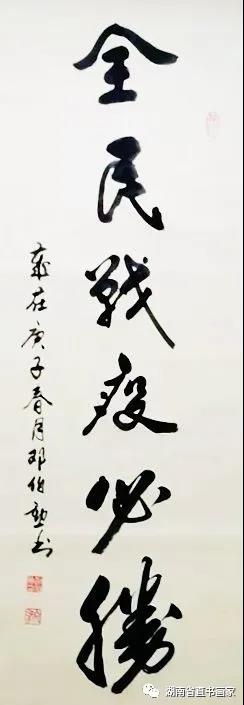 全民戰疫必勝
歲在庚子春月邓伯勳书
湖南省直书画家